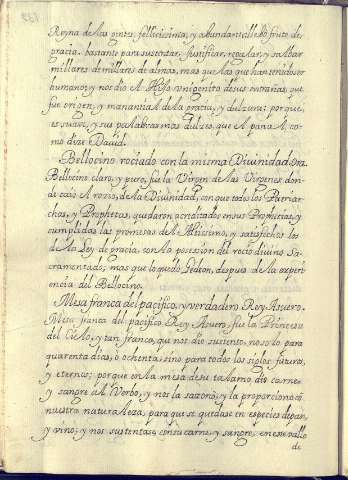 Reyna de las vinas, fellicissima, y abundantissº fruto de
gracia, bastante para sustentar, justificar, regalar, y salbar
millares de millares de almas, mas que las que han tenido ser
humano; y nos dio el Hijo unigenito de sus entrañas, que
fue origen, y manantial de la gracia, y dulzura; porque,
es suave, y sus palabras mas dulzes, que el panal, co-
mo dize Dauid.
Bellocino rociado con la misma Diuinidad. Otra
Bellocino claro, y puro, fue la Virgen de las Virgenes don-
de caió el rocio, de la Diuinidad, con que todos los Patriar-
chas, y Prophetas, quedaron acreditados en sus Prophecias, y
cumplidas las promesas de el Altissimo, y satisfechos los
de la Ley de gracia, con la posesion del rocio diuino Sa-
cramentado; mas que lo quedo Gedeon, despues de la experi-
encia del Bellocino.
Mesa franca del pacifico, y verdadero Rey Asuero.
Mesa franca del pacifico Rey Asuero, fue la Princesa
del Cielo, y tan franca, que nos dio sustento, no solo para
quarenta dias, o ochenta, sino para todos los siglos futuros,
y eternos; porque en la mesa de su talamo dio carne
y sangre al Verbo, y nos la sazonó, y la proporcionó á
nuestra naturaleza, para que se quedase en especies de pan,
y vino, y nos sustentase con su carne, y sangre, en este valle
de